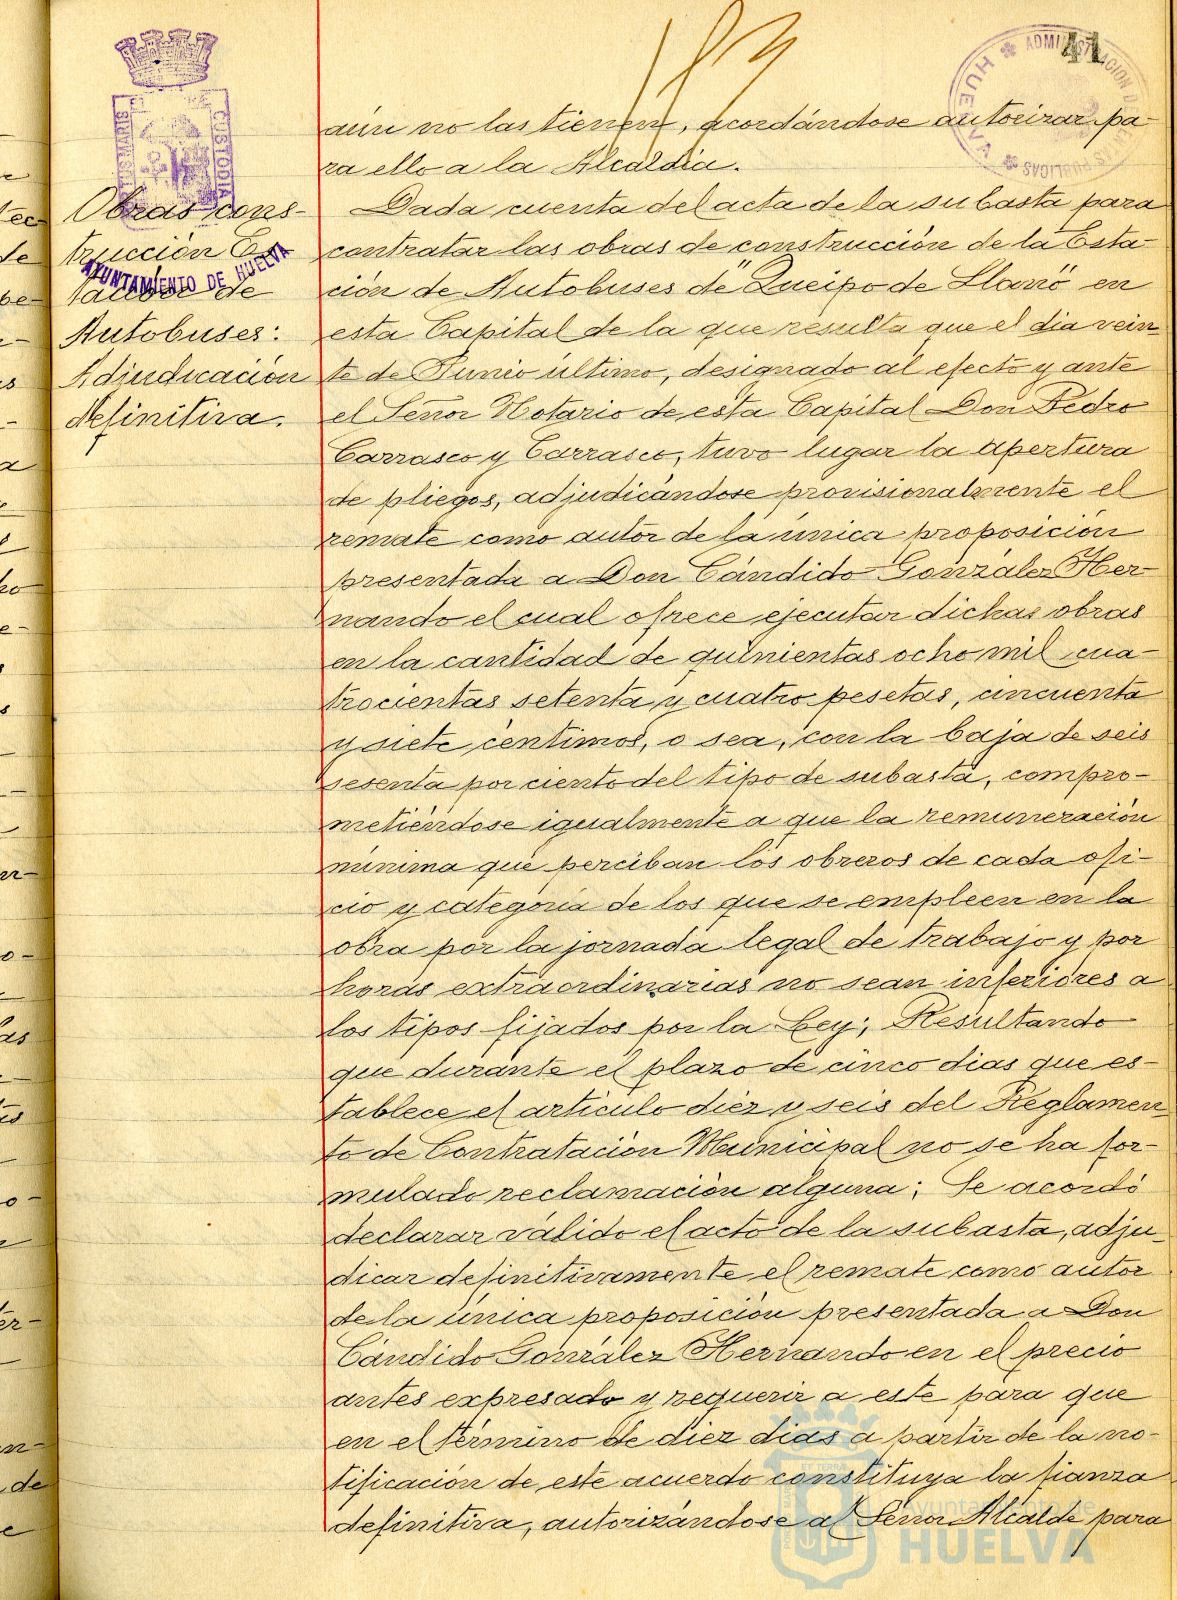 41
aún no las tienen, acordándose autorizar pa-
ra ello a la Alcaldía.
Obras cons-
trucción Es-
tación de
Autobuses:
Adjudicación
definitiva.
AYUNTAMIENTO DE HUELVA
CUSTODIA
Dada cuenta del acta de la subasta para
contratar las obras de construcción de la Esta-
ción de Autobuses de "Queipo de Llano" en
esta Capital de la que resulta que el dia vein-
te de Junio último, designado al efecto y ante
el Señor Notario de esta Capital Don Pedro
Carrasco y Carrasco, tuvo lugar la apertura
de pliegos, adjudicándose provisionalmente el
remate como autor de la única proposición
presentada a Don Cándido González Her-
nando el cual ofrece ejecutar dichas obras
en la cantidad de quinientas ocho mil cua-
trocientas setenta y cuatro pesetas, cincuenta
y siete céntimos, o sea, con la baja de seis
sesenta por ciento del tipo de subasta, compro-
metiéndose igualmente a que la remuneración
mínima que perciban los obreros de cada ofi-
cio y categoría de los que se empleen en la
obra por la jornada legal de trabajo y por
horas extraordinarias no sean inferiores a
los tipos fijados por la Ley; Resultando
que durante el plazo de cinco dias que es-
tablece el artículo diez y seis del Reglamen-
to de Contratación Municipal no se ha for-
mulado reclamación alguna; Se acordó
declarar válido el acto de la subasta, adju-
dicar definitivamente el remate como autor
de la única proposición presentada a Don
Cándido González Hernando en el precio
antes expresado y requerir a este para que
en el término de diez dias a partir de la no-
tificación de este acuerdo constituya la fianza
definitiva, autorizándose al Señor Alcalde para
Ayuntamiento de
HUELVA